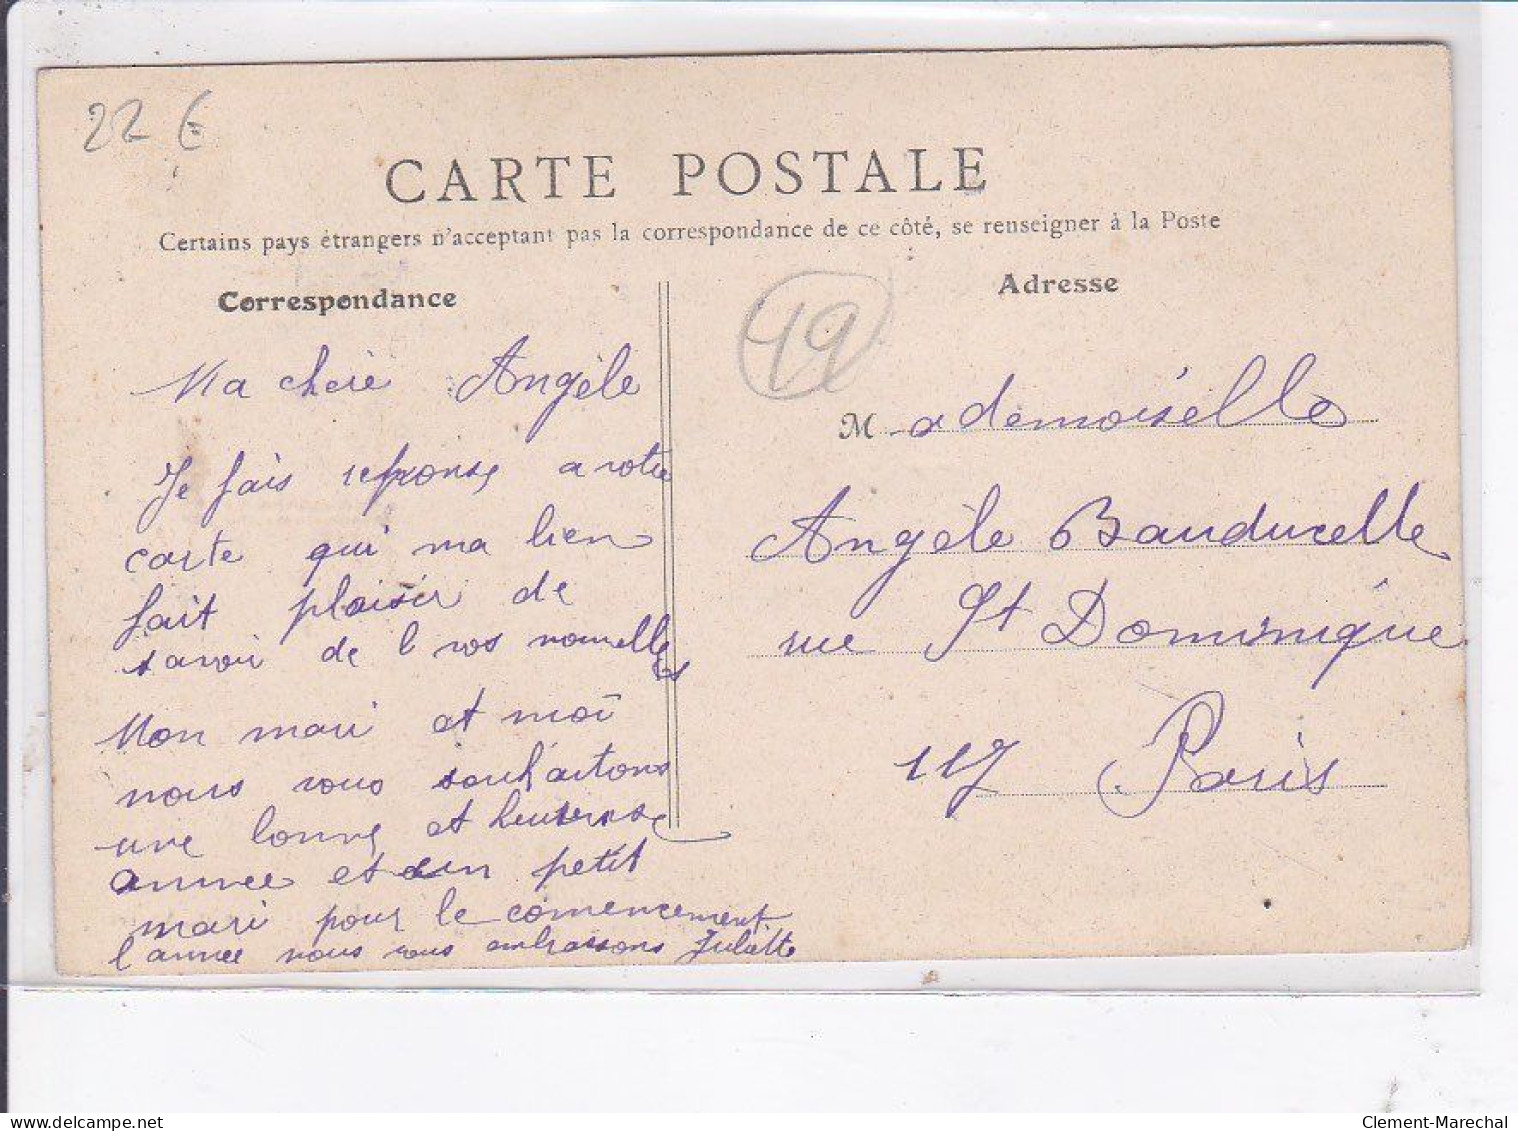 22 €
CARTE POSTALE
Certains pays étrangers n'acceptant pas la correspondance de ce côté, se renseigner à la Poste
Correspondance
Ma chere Angèle
Je fais reponse a votre
carte qui ma bien
fait plaisir de
savoir de vos nouvelles
Mon mari et moi
nous vous souhaitons
une bonne et heureuse
annee et un petit
mari pour le comencement
l'annee nous vous embrassons Juliette
49
Adresse
Mademoiselle
Angèle Bauducelle
rue St Dominique
117 Paris
Clement-Marechal
www.delcampe.net